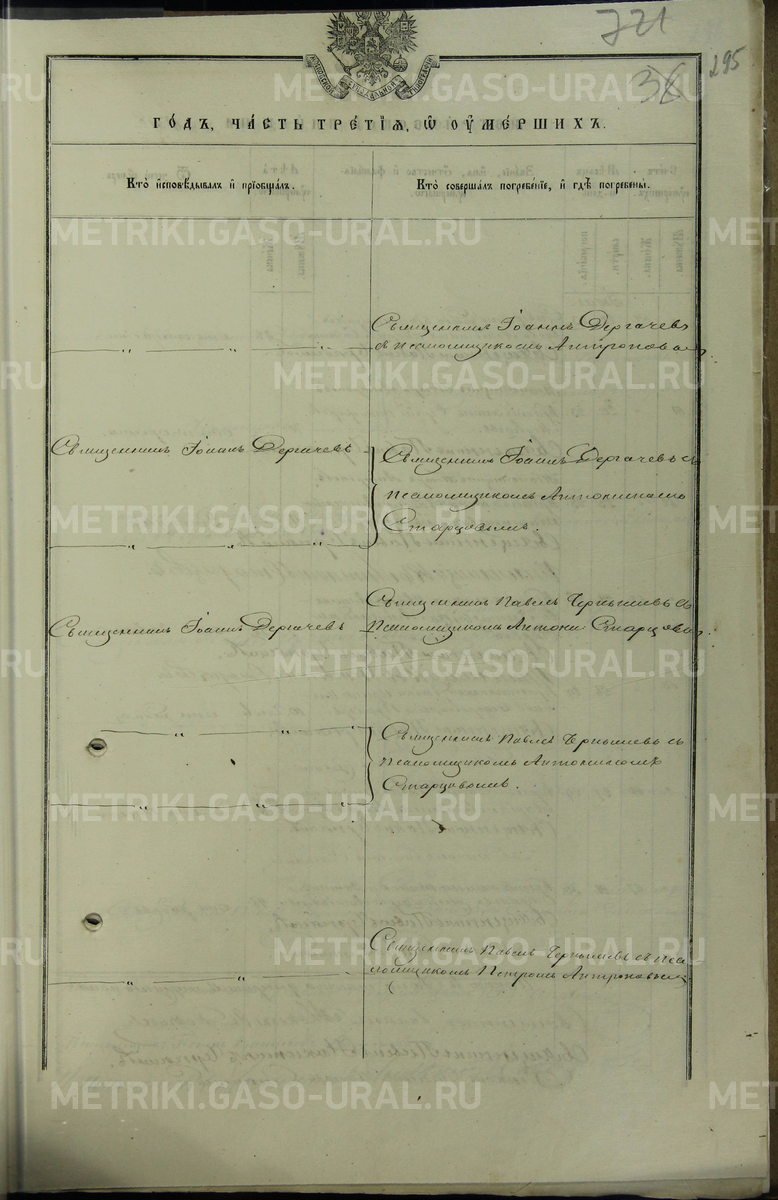 721
295
36
ГОДЪ, ЧАСТЬ ТРЕТІЯ, Ѡ ОУМЕРШИХЪ.
Кто исповѣдывалъ и пріобщалъ.
Кто совершалъ погребеніе, и гдѣ погребены.
Священникъ Іоаннъ Дергачевъ
съ псаломщикомъ Антроповы
Священникъ Іоаннъ Дергачевъ
Священникъ Іоаннъ Дергачевъ съ
псаломщикомъ
Старцовымъ.
Священникъ Павелъ Чернышевъ съ
Священникъ Іоаннъ Дергачевъ
Псаломщикомъ Старцовы
Священникъ Павелъ Чернышевъ съ
псаломщикомъ
Старцовымъ.
Священникъ Павелъ Чернышевъ съ пса
ломщикомъ Петромъ Антроповым
METRIKI.GASO-URAL.RU